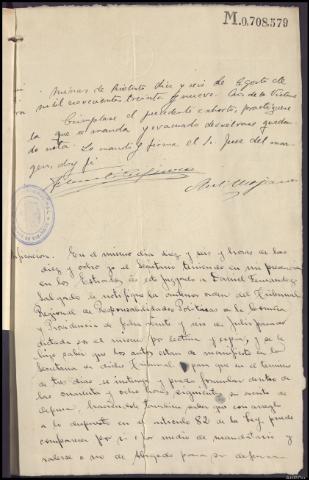 M.0.708.579
Minas de Riotinto diez y seis de Agosto de
mil novecientos treinta y nueve. Año de la Victoria
Cúmplase el precedente exhorto, practíquese
lo que se manda y evacuado devuélvase quedan
do nota. Lo mandó y firma el S. Juez del mar
gen, doy fé
En el mismo dia diez y seis y horas de las
diez y ocho yo el Secretario teniendo en mi presencia
en los Estrados de este juzgado a Daniel Fernandez
Salgado le notifiqué la anterior orden del Tribunal
Regional de Responsabilidades Politicas
y Providencia de fecha veinte y seis de Julio pasado
dictada en el mismo por lectura y copia, y se le
hizo saber que los autos estan de manifiesto en la
Secretaria de dicho Tribunal para que en el termino
de tres dias se instruya y pueda formular dentro de
los cuarenta y ocho horas siguientes su escrito de
defensa, haciendole tambien saber que con arreglo
a lo dispuesto en el articulo 82 de la Ley, puede
comparecer por si o por medio de mandatario y
valerse o no de Abogado para su defensa